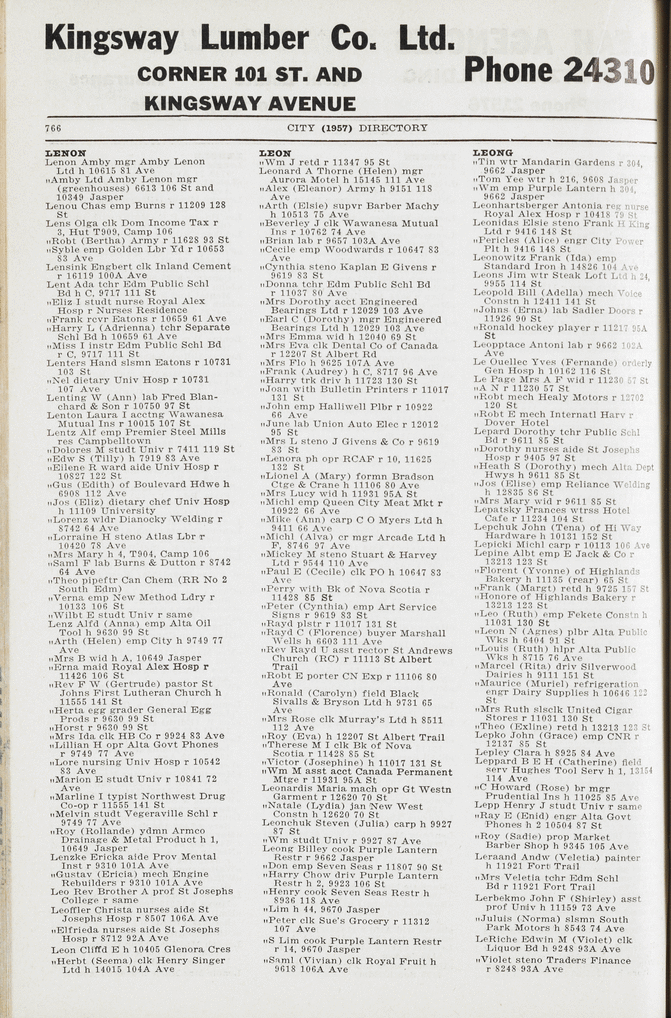 Kingsway Lumber Co. Ltd.
CORNER 101 ST. AND
KINGSWAY AVENUE
Phone 24310
766
CITY (1957) DIRECTORY
LENON
Lenon Amby mgr Amby Lenon
Ltd h 10615 81 Ave
„Amby Ltd Amby Lenon mgr
(greenhouses) 6613 106 St and
10349 Jasper
Lenou Chas emp Burns r 11209 128
St
Lens Olga clk Dom Income Tax r
3, Hut T909, Camp 106
„Robt (Bertha) Army r 11628 93 St
„Syble emp Golden Lbr Yd r 10653
83 Ave
Lensink Engbert clk Inland Cement
r 16119 100A Ave
Lent Ada tchr Edm Public Schl
Bd h C, 9717 111 St
„Eliz I studt nurse Royal Alex
Hosp r Nurses Residence
„Frank rcvr Eatons r 10659 61 Ave
„Harry L (Adrienna) tchr Separate
Schl Bd h 10659 61 Ave
„Miss I instr Edm Public Schl Bd
r C, 9717 111 St
Lenters Hand slsmn Eatons r 10731
103 St
„Nel dietary Univ Hosp r 10731
107 Ave
Lenting W (Ann) lab Fred Blan-
chard & Son r 10750 97 St
Lenton Laura I acctng Wawanesa
Mutual Ins r 10015 107 St
Lentz Alf emp Premier Steel Mills
res Campbelltown
„Dolores M studt Univ r 7411 119 St
„Edw S (Tilly) h 7919 83 Ave
„Eilene R ward aide Univ Hosp r
10827 122 St
„Gus (Edith) of Boulevard Hdwe h
6908 112 Ave
„Jos (Eliz) dietary chef Univ Hosp
h 11109 University
„Lorenz wldr Dianocky Welding r
8742 64 Ave
„Lorraine H steno Atlas Lbr r
10420 78 Ave
„Mrs Mary h 4, T904, Camp 106
„Saml F lab Burns & Dutton r 8742
64 Ave
„Theo pipeftr Can Chem (RR No 2
South Edm)
„Verna emp New Method Ldry r
10133 106 St
„Wilbt E studt Univ r same
Lenz Alfd (Anna) emp Alta Oil
Tool h 9630 99 St
„Arth (Helen) emp City h 9749 77
Ave
„Mrs B wid h A, 10649 Jasper
„Erna maid Royal Alex Hosp r
11426 106 St
„Rev F W (Gertrude) pastor St
Johns First Lutheran Church h
11555 141 St
„Herta egg grader General Egg
Prods r 9630 99 St
„Horst r 9630 99 St
„Mrs Ida clk HB Co r 9924 83 Ave
„Lillian H opr Alta Govt Phones
r 9749 77 Ave
„Lore nursing Univ Hosp r 10542
83 Ave
„Marion E studt Univ r 10841 72
Ave
„Marline I typist Northwest Drug
Co-op r 11555 141 St
„Melvin studt Vegeraville Schl r
9749 77 Ave
„Roy (Rollande) ydmn Armco
Drainage & Metal Product h 1,
10649 Jasper
Lenzke Ericka aide Prov Mental
Inst r 9310 101A Ave
„Gustav (Ericia) mech Engine
Rebuilders r 9310 101A Ave
Leo Rev Brother A prof St Josephs
College r same
Leoffler Christa nurses aide St
Josephs Hosp r 8507 106A Ave
„Elfrieda nurses aide St Josephs
Hosp r 8712 92A Ave
Leon Cliffd E h 10405 Glenora Cres
„Herbt (Seema) clk Henry Singer
Ltd h 14015 104A Ave
LEON
„Wm J retd r 11347 95 St
Leonard A Thorne (Helen) mgr
Aurora Motel h 15145 111 Ave
„Alex (Eleanor) Army h 9151 118
Ave
„Arth (Elsie) supvr Barber Machy
h 10513 75 Ave
„Beverley J clk Wawanesa Mutual
Ins r 10762 74 Ave
„Brian lab r 9657 103A Ave
„Cecile emp Woodwards r 10647 83
Ave
„Cynthia steno Kaplan E Givens r
9619 83 St
„Donna tchr Edm Public Schl Bd
r 11037 80 Ave
„Mrs Dorothy acct Engineered
Bearings Ltd r 12029 103 Ave
„Earl C (Dorothy) mgr Engineered
Bearings Ltd h 12029 103 Ave
„Mrs Emma wid h 12040 69 St
„Mrs Eva clk Dental Co of Canada
r 12207 St Albert Rd
„Mrs Flo h 9625 107A Ave
„Frank (Audrey) h C, 8717 96 Ave
„Harry trk driv h 11723 130 St
„Joan with Bulletin Printers r 11017
131 St
„John emp Halliwell Plbr r 10922
66 Ave
„June lab Union Auto Elec r 12012
95 St
„Mrs L steno J Givens & Co r 9619
83 St
„Lenora ph opr RCAF r 10, 11625
132 St
„Lionel A (Mary) formn Bradson
Ctge & Crane h 11106 80 Ave
„Mrs Lucy wid h 11931 95A St
„Michl emp Queen City Meat Mkt r
10922 66 Ave
„Mike (Ann) carp C O Myers Ltd h
9411 66 Ave
„Michl (Alva) cr mgr Arcade Ltd h
F, 8746 97 Ave
„Mickey M steno Stuart & Harvey
Ltd r 9544 110 Ave
„Paul E (Cecile) clk PO h 10647 83
Ave
„Perry with Bk of Nova Scotia r
11428 85 St
„Peter (Cynthia) emp Art Service
Signs r 9619 83 St
„Rayd plstr r 11017 131 St
„Rayd C (Florence) buyer Marshall
Wells h 6603 111 Ave
„Rev Rayd U asst rector St Andrews
Church (RC) r 11113 St Albert
Trail
„Robt E porter CN Exp r 11106 80
Ave
„Ronald (Carolyn) field Black
Sivalls & Bryson Ltd h 9731 65
Ave
„Mrs Rose clk Murray's Ltd h 8511
112 Ave
„Roy (Eva) h 12207 St Albert Trail
„Therese M I clk Bk of Nova
Scotia r 11428 85 St
„Victor (Josephine) h 11017 131 St
„Wm M asst acct Canada Permanent
Mtge r 11931 95A St
Leonardis Maria mach opr Gt Westn
Garment r 12620 70 St
„Natale (Lydia) jan New West
Constn h 12620 70 St
Leonchuk Steven (Julia) carp h 9927
87 St
„Wm studt Univ r 9927 87 Ave
Leong Billey cook Purple Lantern
Restr r 9662 Jasper
„Don emp Seven Seas r 11807 90 St
„Harry Chow driv Purple Lantern
Restr h 2, 9923 106 St
„Henry cook Seven Seas Restr h
8936 118 Ave
„Lim h 44, 9670 Jasper
„Peter clk Sue's Grocery r 11312
107 Ave
„S Lim cook Purple Lantern Restr
r 14, 9670 Jasper
„Saml (Vivian) clk Royal Fruit h
9618 106A Ave
LEONG
„Tin wtr Mandarin Gardens r 304,
9662 Jasper
„Tom Yee wtr h 216, 9608 Jasper
„Wm emp Purple Lantern h 304,
9662 Jasper
Leonhartsberger Antonia reg nurse
Royal Alex Hosp r 10418 79 St
Leonidas Elsie steno Frank H King
Ltd r 9416 148 St
„Pericles (Alice) engr City Power
Plt h 9416 148 St
Leonowitz Frank (Ida) emp
Standard Iron h 14826 104 Ave
Leons Jim wtr Steak Loft Ltd h 24,
9955 114 St
Leopold Bill (Adella) mech Voice
Constn h 12411 141 St
„Johns (Erna) lab Sadler Doors r
11926 90 St
„Ronald hockey player r 11217 95A
St
Leopptace Antoni lab r 9662 102A
Ave
Le Ouellec Yves (Fernande) orderly
Gen Hosp h 10162 116 St
Le Page Mrs A F wid r 11230 57 St
„A N r 11230 57 St
„Robt mech Healy Motors r 12702
120 St
„Robt E mech Internatl Harv r
Dover Hotel
Lepard Dorothy tchr Public Schl
Bd r 9611 85 St
„Dorothy nurses aide St Josephs
Hosp r 9405 97 St
„Heath S (Dorothy) mech Alta Dept
Hwys h 9611 85 St
„Jos (Elise) emp Reliance Welding
h 12835 86 St
„Mrs Mary wid r 9611 85 St
Lepatsky Frances wtrss Hotel
Cafe r 11234 104 St
Lepchuk John (Tena) of Hi Way
Hardware h 10131 152 St
Lepicki Michl carp r 10113 106 Ave
Lepine Albt emp E Jack & Co r
13213 123 St
„Florent (Yvonne) of Highlands
Bakery h 11135 (rear) 65 St
„Frank (Margt) retd h 9725 157 St
„Honore of Highlands Bakery r
13213 123 St
„Leo (Ruth) emp Fekete Constn h
11031 130 St
„Leon N (Agnes) plbr Alta Public
Wks h 6404 91 St
„Louis (Ruth) hlpr Alta Public
Wks h 8715 76 Ave
„Marcel (Rita) driv Silverwood
Dairies h 9111 151 St
„Maurice (Muriel) refrigeration
engr Dairy Supplies h 10646 122
St
„Mrs Ruth slsclk United Cigar
Stores r 11031 130 St
„Theo (Exline) retd h 13213 123 St
Lepko John (Grace) emp CNR r
12137 85 St
Lepley Clara h 8925 84 Ave
Leppard B E H (Catherine) field
serv Hughes Tool Serv h 1, 13154
114 Ave
„C Howard (Rose) br mgr
Prudential Ins h 11025 85 Ave
Lepp Henry J studt Univ r same
„Ray E (Enid) engr Alta Govt
Phones h 2 10504 87 St
„Roy (Sadie) prop Market
Barber Shop h 9345 105 Ave
Leraand Andw (Veletia) painter
h 11921 Fort Trail
„Mrs Veletia tchr Edm Schl
Bd r 11921 Fort Trail
Lerbekmo John F (Shirley) asst
prof Univ h 11159 73 Ave
„Juluis (Norma) slsmn South
Park Motors h 8543 74 Ave
LeRiche Edwin M (Violet) clk
Liquor Bd h 9248 93A Ave
„Violet steno Traders Finance
r 8248 93A Ave